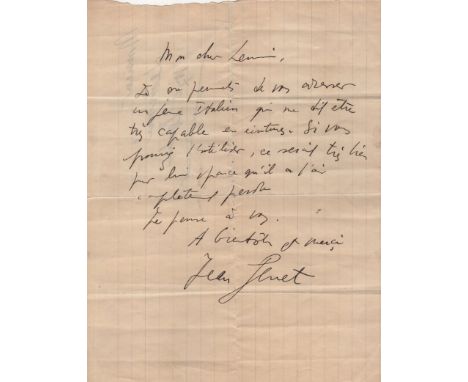 Mon cher Lemin,
Je me permets de vous adresser
un jeune Italien qui me dit être
très capable en cintres. Si vous
pouviez l'utiliser, ce serait très bien
pour lui parce qu'il a l'air
complètement perdu
Je pense à vous.
A bientôt et merci
Jean Genet